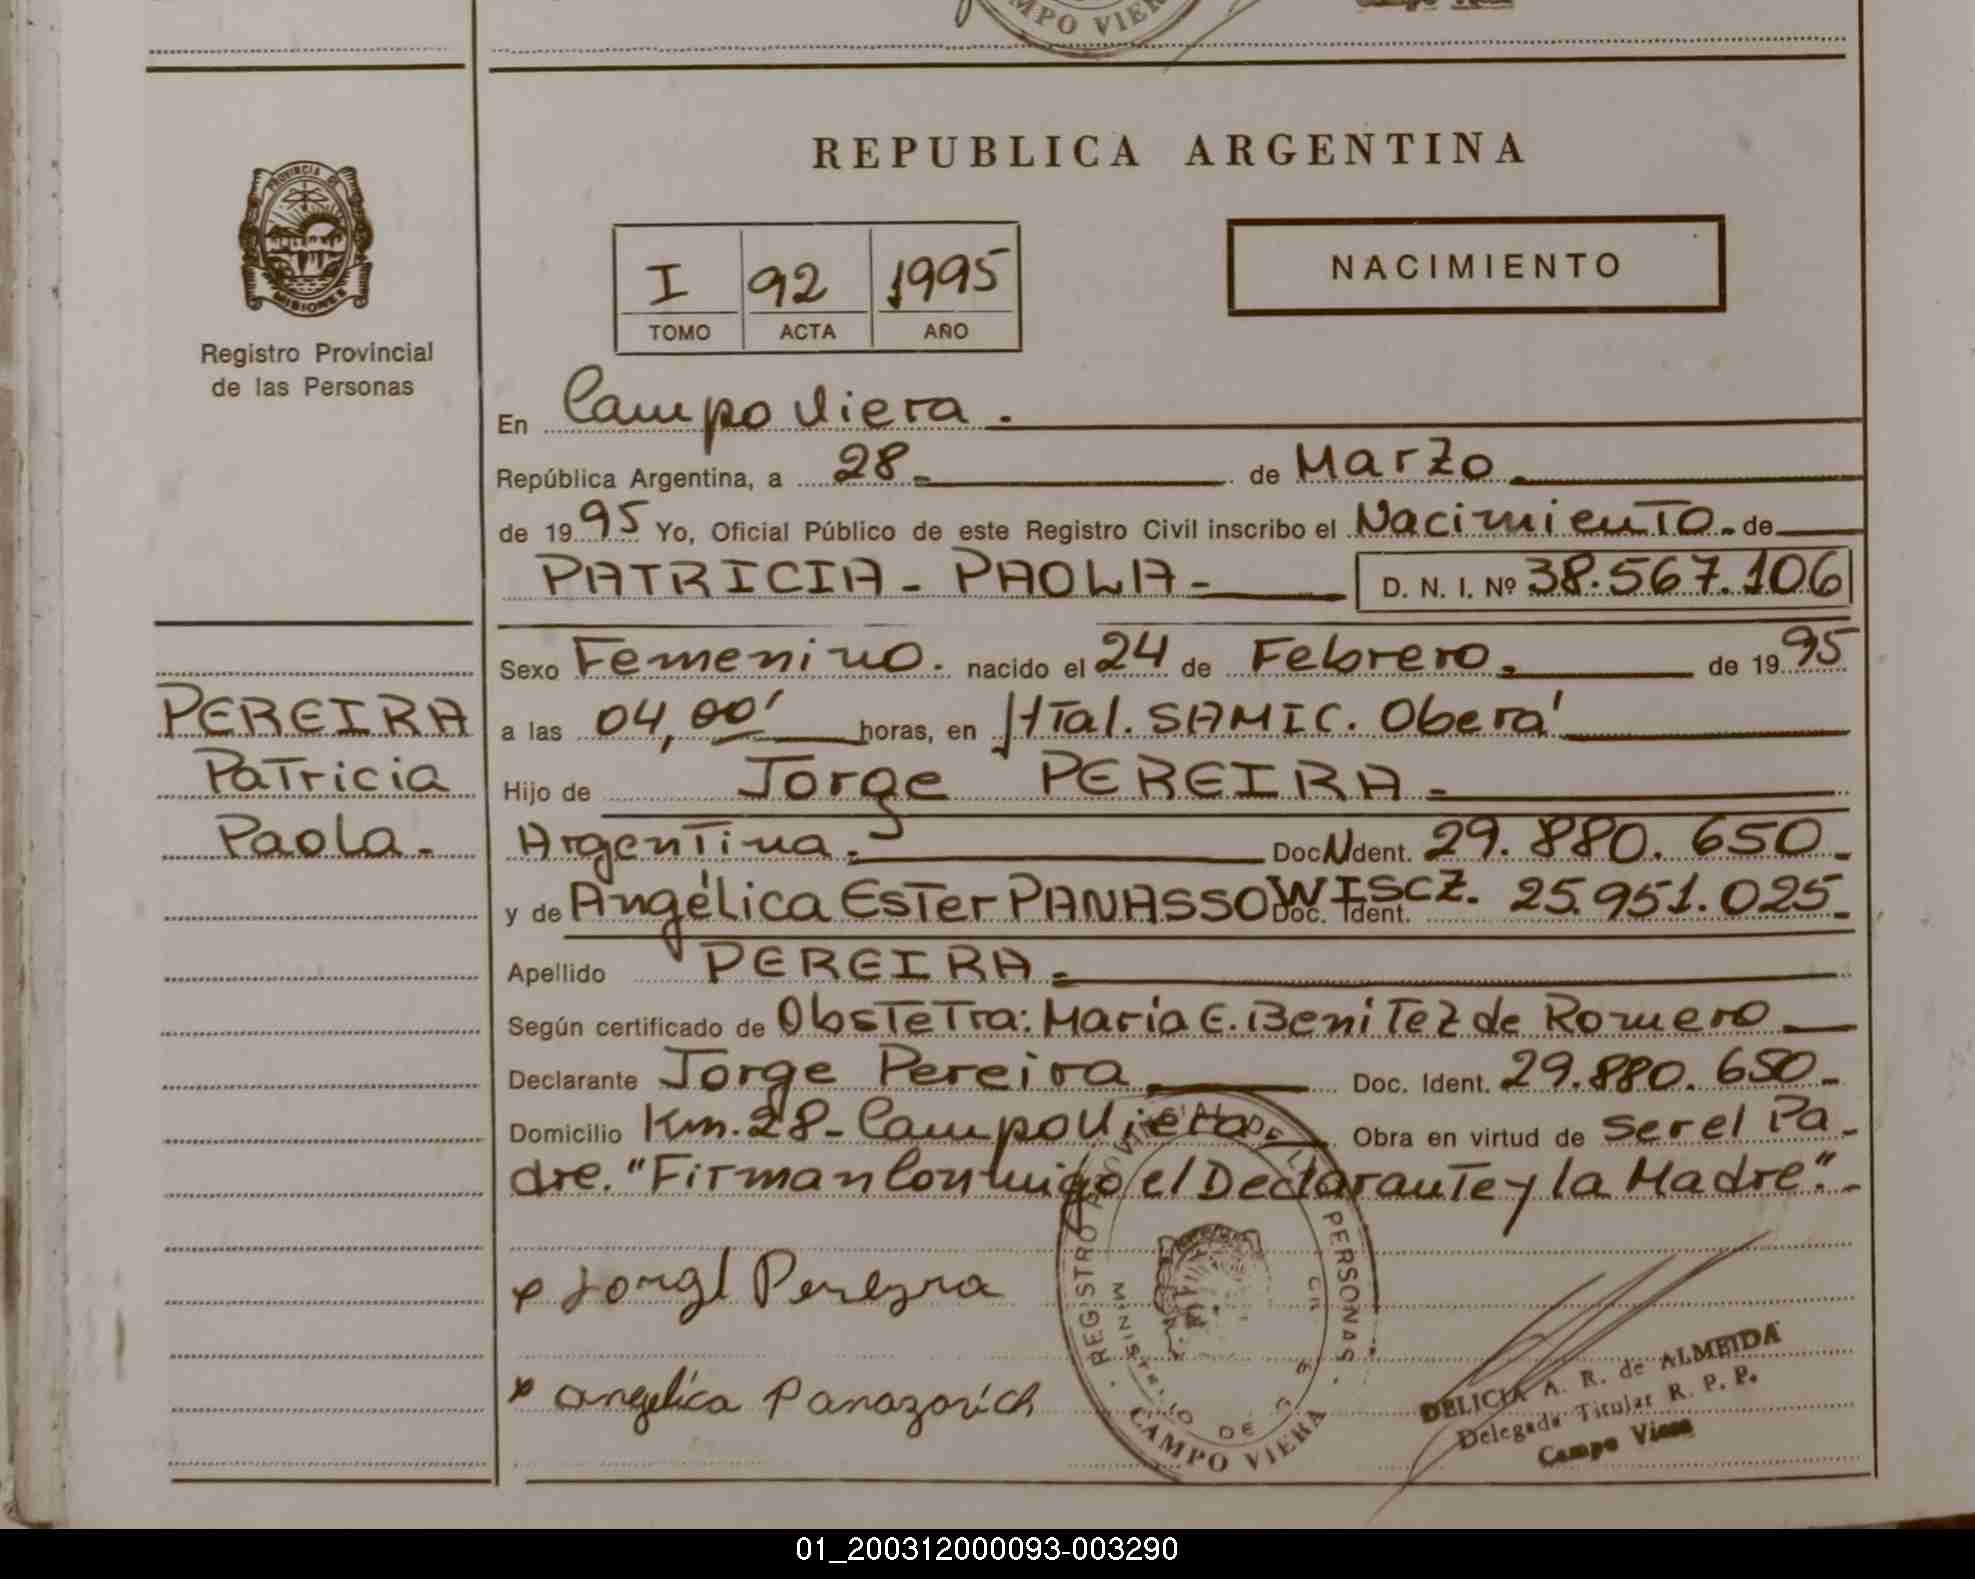 MPO VIER
REPUBLICA ARGENTINA
PROVINCIA DE
MISIONES
Registro Provincial
de las Personas
I 92 1995
TOMO ACTA AÑO
NACIMIENTO
En Campo Viera.
República Argentina, a 28 de Marzo
de 1995 Yo, Oficial Público de este Registro Civil inscribo el Nacimiento de
PATRICIA - PAOLA - D. N. I. Nº 38.567.106
Sexo Femenino. nacido el 24 de Febrero de 1995
PEREIRA
Patricia
Paola.-
a las 04,00' horas, en Htal. SAMIC. Oberá
Hijo de Jorge PEREIRA.-
Argentina. Doc. Ident. 29.880.650.-
y de Angélica Ester PANASSOWISCZ. Doc. Ident. 25.951.025.-
Apellido PEREIRA.-
Según certificado de Obstetra: María E. Benitez de Romero
Declarante Jorge Pereira Doc. Ident. 29.880.650.-
Domicilio Km. 28 - Campo Viera Obra en virtud de ser el Pa-
dre. "Firman Conmigo el Declarante y la Madre".-
Jorgl Pereyra
angelica Panazovich
REGISTRO PROVINCIAL DE L PERSONAS
MINISTERIO DE G
CAMPO VIERA
DELICIA A. R. de ALMEIDA
Delegada Titular R. P. P.
Campo Viera
01_200312000093-003290